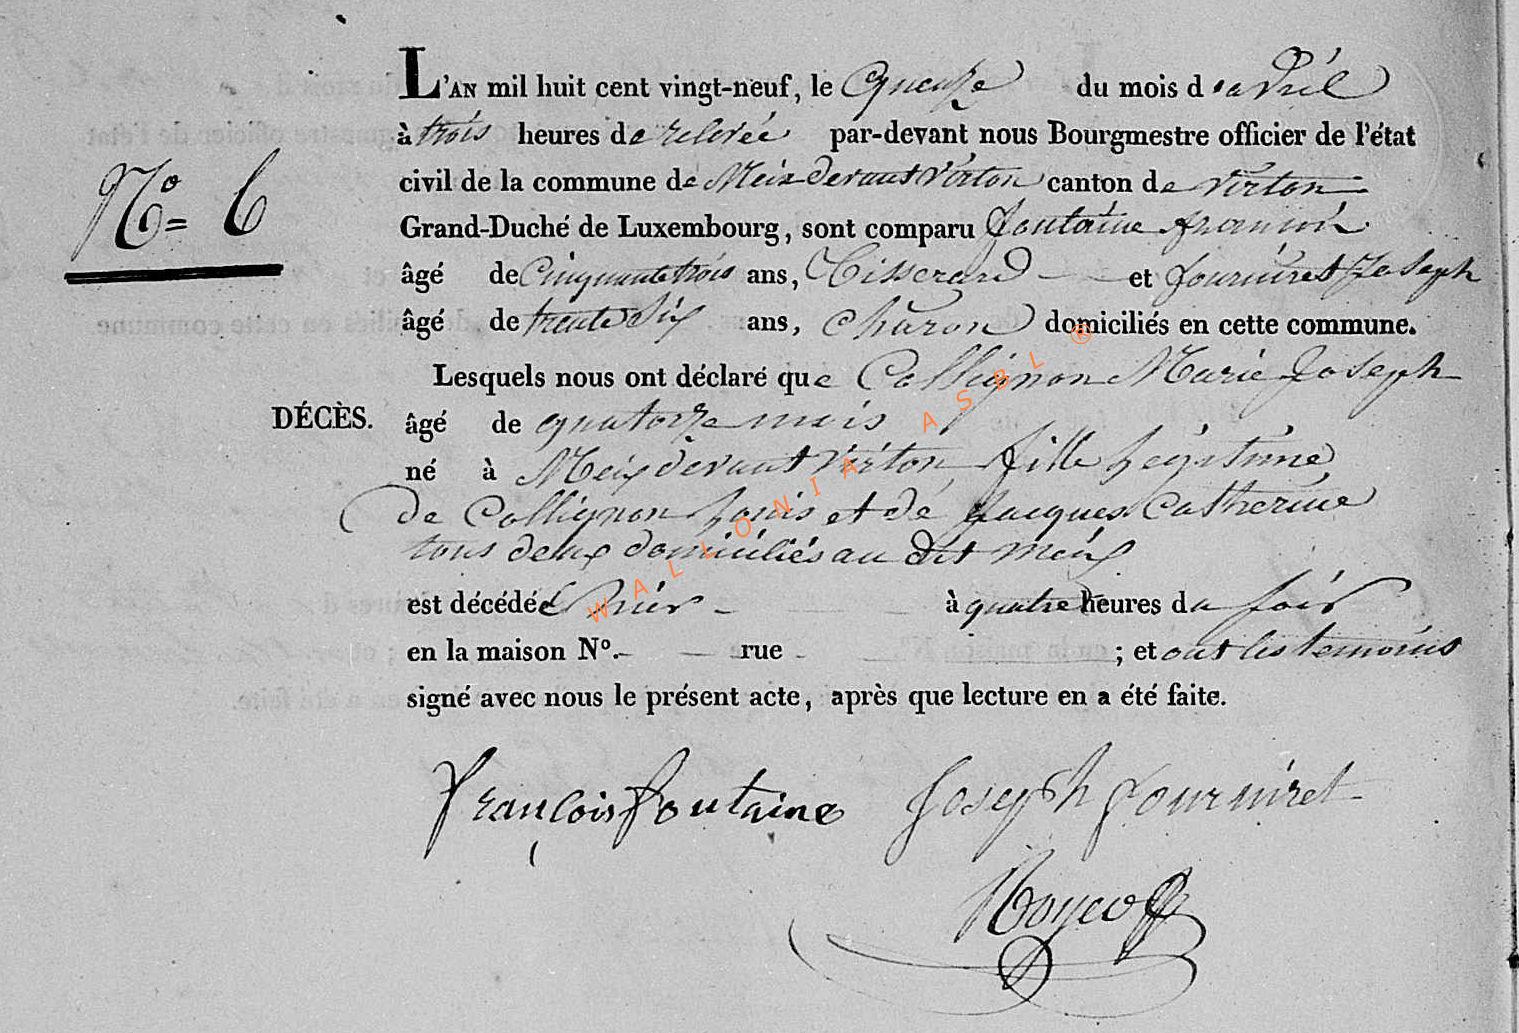 L'AN mil huit cent vingt-neuf, le quenze du mois d'avril
à trois heures de relevée par-devant nous Bourgmestre officier de l'état
civil de la commune de Meix devant Virton canton de Virton
N° 6
Grand-Duché de Luxembourg, sont comparu fontaine francois
âgé de Cinquante trois ans, Tisserand et fourniret Joseph
âgé de trente Six ans, Charon domiciliés en cette commune.
Lesquels nous ont déclaré que Collignon Marie Joseph
DÉCÈS. âgé de quatorze mois
né à Meix devant Virton fille légitime
de Collignon Louis et de Jacques Catherine
tous deux domiciliés au dit meix
est décédée hier à quatre heures du soir
en la maison N°. rue ; et ont les temoins
signé avec nous le présent acte, après que lecture en a été faite.
François fontaine Joseph fourniret
WALLONIA ASBL ®